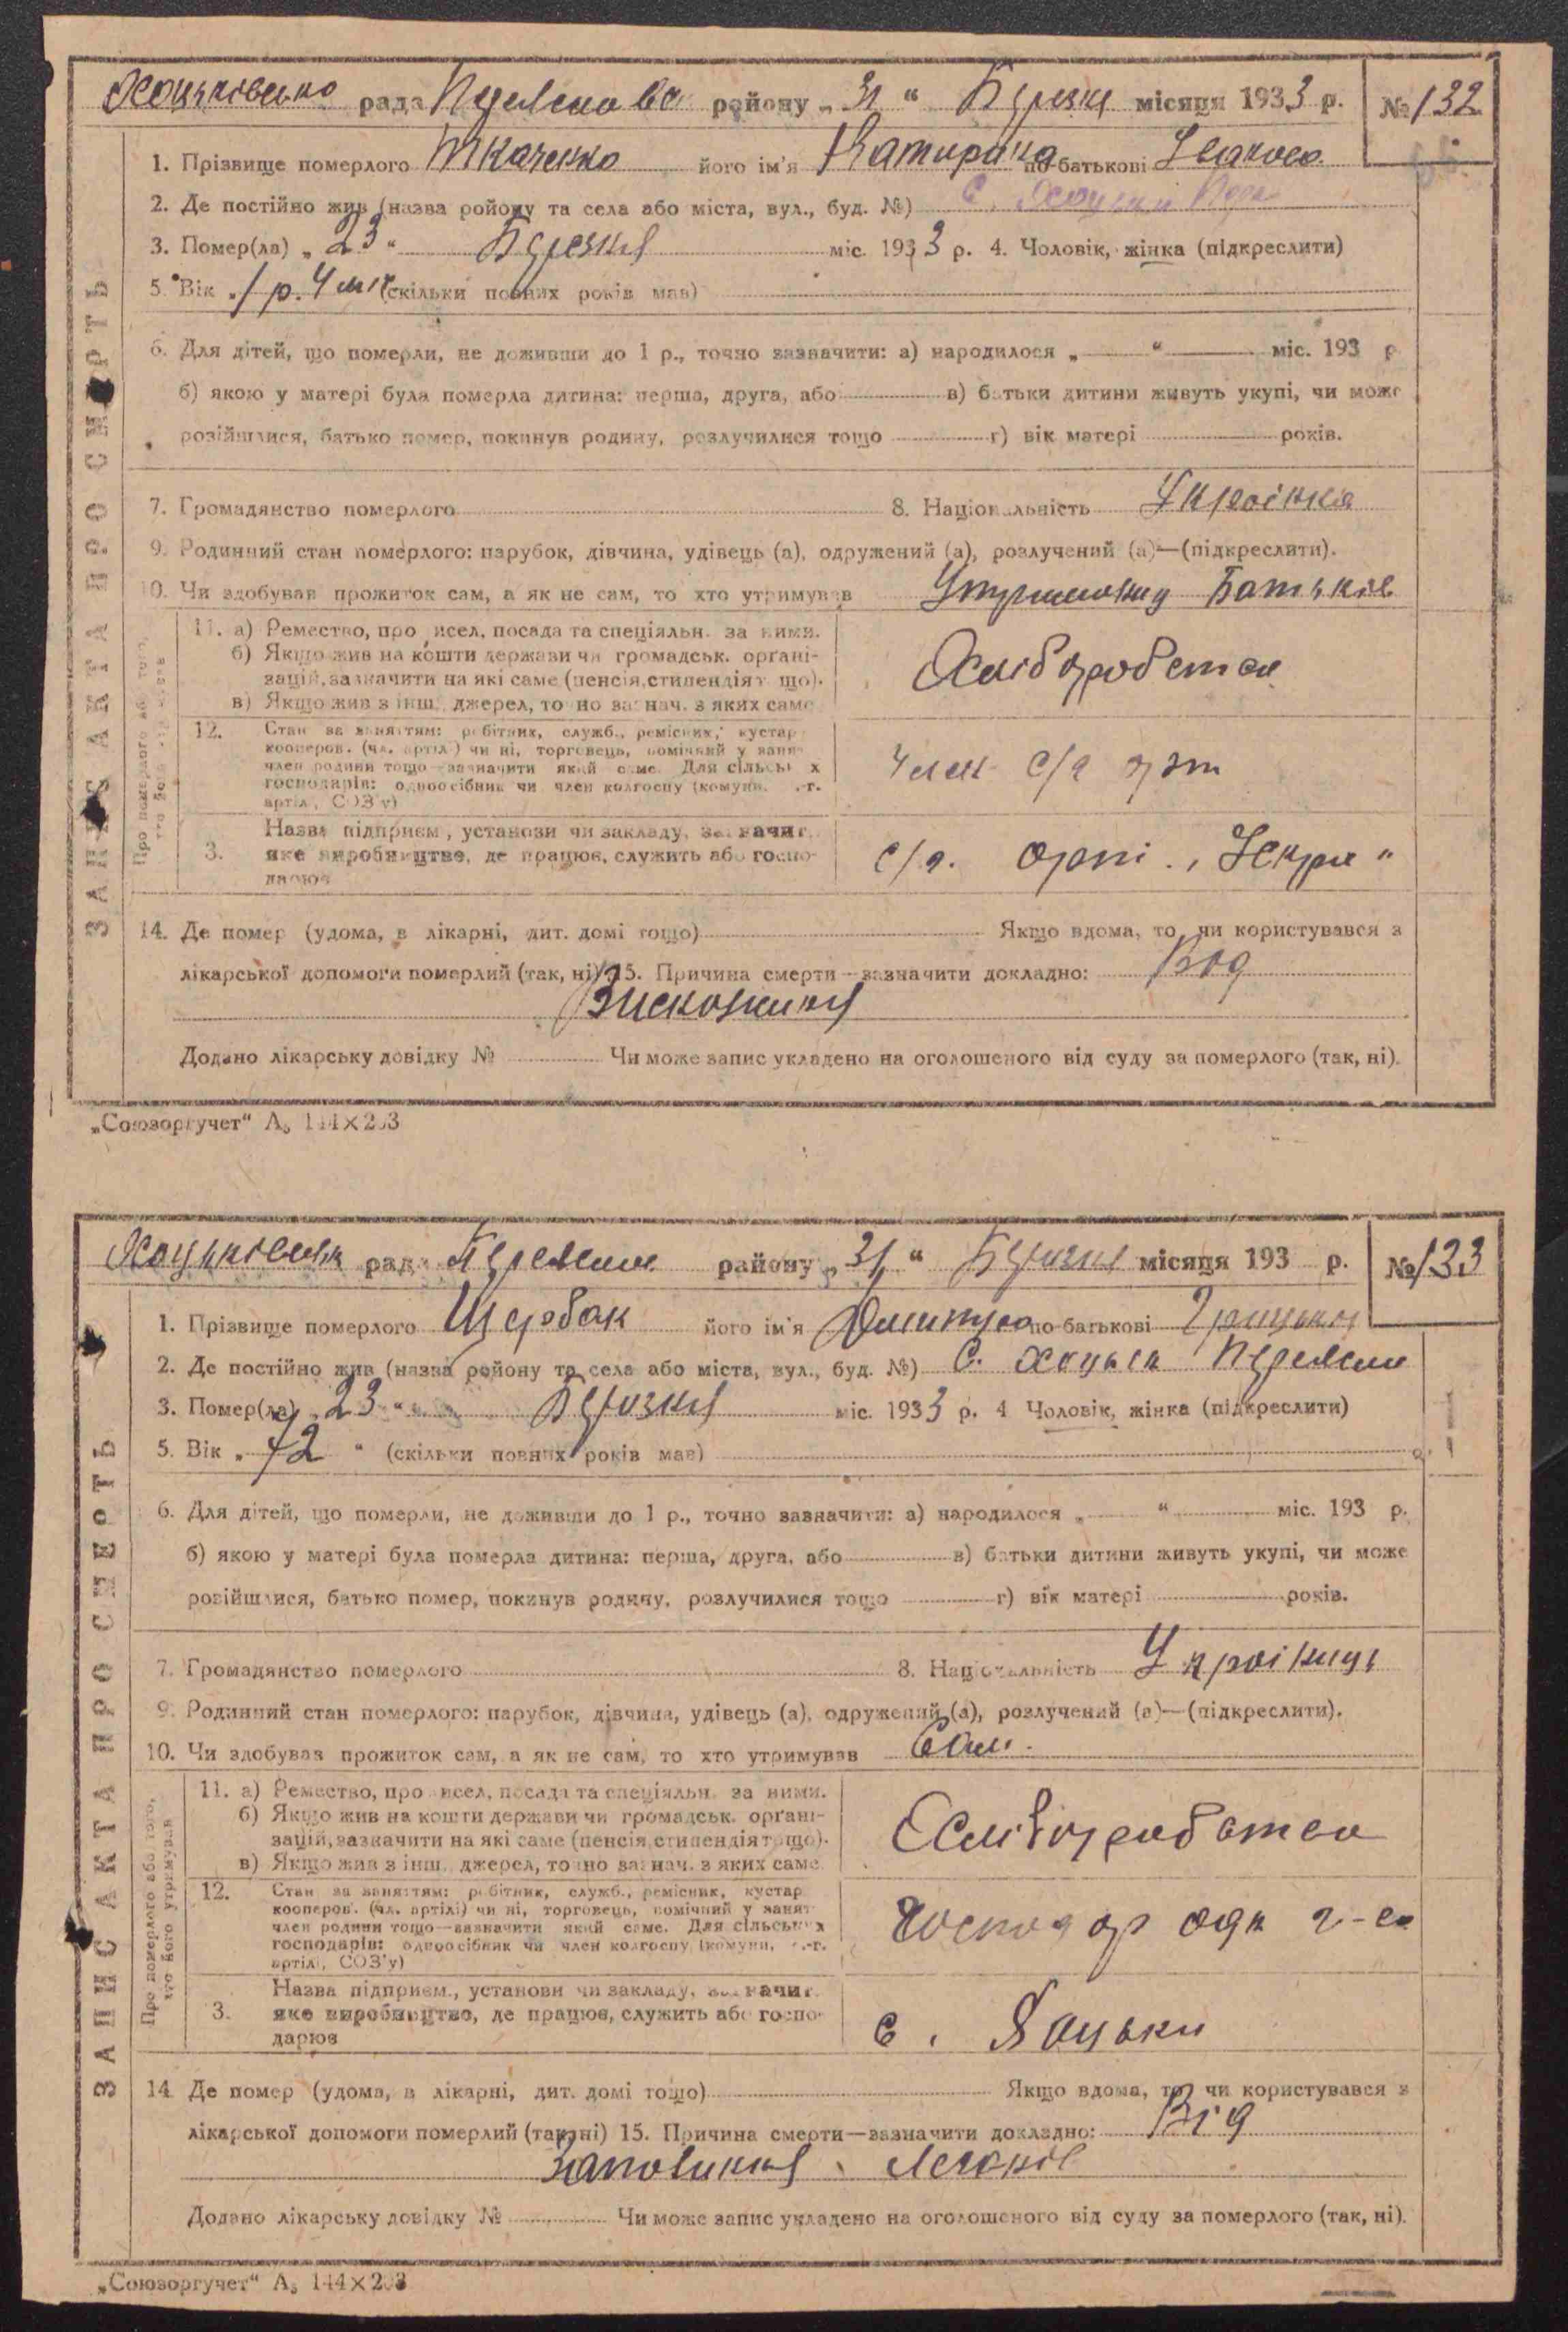 Хоцьківська рада Переяслава району „31“ Березня місяця 1933 р. № 132
ЗАПИС АКТА ПРО СМЕРТЬ
1. Прізвище померлого Ткаченко його ім'я Катирина по-батькові Іванова
2. Де постійно жив (назва ройону та села або міста, вул., буд. №) С. Хоцьки Пере
3. Помер(ла) „23“ Березня міс. 1933 р. 4. Чоловік, жінка (підкреслити)
5. Вік „1 р. 4 міс (скільки повних років мав)
6. Для дітей, що померли, не доживши до 1 р., точно зазначити: а) народилося „ “ міс. 193 р
б) якою у матері була померла дитина: перша, друга, або в) батьки дитини живуть укупі, чи може
розійшлися, батько помер, покинув родину, розлучилися тощо г) вік матері років.
7. Громадянство померлого 8. Національність Українка
9. Родинний стан померлого: парубок, дівчина, удівець (а), одружений (а), розлучений (а)—(підкреслити).
10. Чи здобував прожиток сам, а як не сам, то хто утримував Утриманку Батьків
Про померлого або того, хто його утримував
11. а) Ремество, промисел, посада та спеціяльн. за ними.
б) Якщо жив на кошти держави чи громадськ. органі-
зацій, зазначити на які саме (пенсія, стипендія тощо).
в) Якщо жив з інш. джерел, точно зазнач. з яких саме
Хліборобства
12. Стан за заняттям: робітник, служб., ремісник, кустар
кооперов. (чл. артілі) чи ні, торговець, помічний у занят
член родини тощо—зазначити який саме. Для сільських
господарів: одноосібник чи член колгоспу (комуни, с.-г.
артілі, СОЗ'у)
Член с/г арт
3. Назва підприєм., установи чи закладу, зазначит.
яке виробництво, де працює, служить або госпо-
дарює
с/г. арті. „Іскра“
14. Де помер (удома, в лікарні, дит. домі тощо) Якщо вдома, то чи користувався з
лікарської допомоги померлий (так, ні) 15. Причина смерти—зазначити докладно: Від
Висноження
Додано лікарську довідку № Чи може запис укладено на оголошеного від суду за померлого (так, ні).
„Союзоргучет“ А₅ 144×203
Хоцьківська рада Переяслав району „31“ Березня місяця 193 р. № 133
ЗАПИС АКТА ПРО СМЕРТЬ
1. Прізвище померлого Щербак його ім'я Дмитро по-батькові Грицьк
2. Де постійно жив (назва району та села або міста, вул., буд. №) С. Хоцьки Переясла
3. Помер(ла) „23“ Березня міс. 1933 р. 4 Чоловік, жінка (підкреслити)
5. Вік „72“ (скільки повних років мав)
6. Для дітей, що померли, не доживши до 1 р., точно зазначити: а) народилося „ “ міс. 193 р.
б) якою у матері була померла дитина: перша, друга, або в) батьки дитини живуть укупі, чи може
розійшлися, батько помер, покинув родину, розлучилися тощо г) вік матері років.
7. Громадянство померлого 8. Національність Українець
9. Родинний стан померлого: парубок, дівчина, удівець (а), одружений (а), розлучений (а)—(підкреслити).
10. Чи здобував прожиток сам, а як не сам, то хто утримував Сам.
Про померлого або того, хто його утримував
11. а) Ремество, промисел, посада та спеціяльн. за ними.
б) Якщо жив на кошти держави чи громадськ. органі-
зацій, зазначити на які саме (пенсія, стипендія тощо).
в) Якщо жив з інш. джерел, точно зазнач. з яких саме.
Хліборобства
12. Стан за заняттям: робітник, служб., ремісник, кустар
кооперов. (чл. артілі) чи ні, торговець, помічний у занят
член родини тощо—зазначити який саме. Для сільських
господарів: одноосібник чи член колгоспу (комуни, с.-г.
артілі, СОЗ'у)
Господар одн г-ва
3. Назва підприєм., установи чи закладу, зазначит.
яке виробництво, де працює, служить або госпо-
дарює
с. Хоцьки
14. Де помер (удома, в лікарні, дит. домі тощо) Якщо вдома, то чи користувався з
лікарської допомоги померлий (так, ні) 15. Причина смерти—зазначити докладно: Від
Запалення Легенів
Додано лікарську довідку № Чи може запис укладено на оголошеного від суду за померлого (так, ні).
„Союзоргучет“ А₅ 144×203